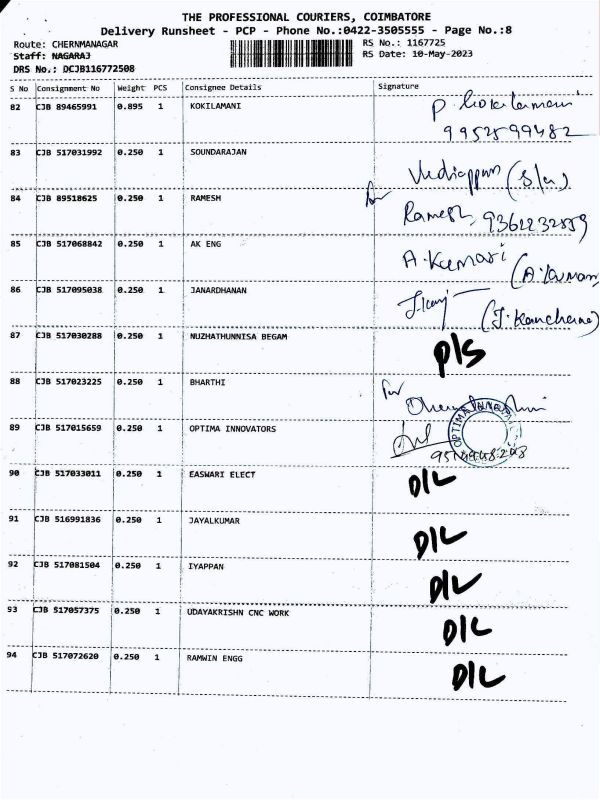 THE PROFESSIONAL COURIERS, COIMBATORE
Delivery Runsheet - PCP - Phone No.:0422-3505555 - Page No.:8
Route: CHERNMANAGAR RS No.: 1167725
Staff: NAGARAJ RS Date: 10-May-2023
DRS No.: DCJB116772508
S No Consignment No Weight PCS Consignee Details Signature
82 CJB 89465991 0.895 1 KOKILAMANI P. Kokilamani
9952599482
83 CJB 517031992 0.250 1 SOUNDARAJAN
84 CJB 89518625 0.250 1 RAMESH for
Ramesh, 9361232859
85 CJB 517068842 0.250 1 AK ENG A.Kumari
86 CJB 517095038 0.250 1 JANARDHANAN
(J.Kanchana)
87 CJB 517030288 0.250 1 NUZHATHUNNISA BEGAM P/S
88 CJB 517023225 0.250 1 BHARTHI for
89 CJB 517015659 0.250 1 OPTIMA INNOVATORS OPTIMA
90 CJB 517033011 0.250 1 EASWARI ELECT D/L
91 CJB 516991836 0.250 1 JAYALKUMAR D/L
92 CJB 517081504 0.250 1 IYAPPAN D/L
93 CJB 517057375 0.250 1 UDAYAKRISHN CNC WORK D/L
94 CJB 517072620 0.250 1 RAMWIN ENGG D/L